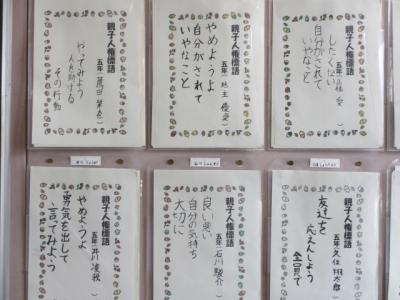 親子人権標語
五年
やってみよう
人を助ける
その行動
親子人権標語
五年
やめようよ
自分がされて
いやなこと
親子人権標語
五年
したくない
自分がされて
いやなこと
親子人権標語
五年
やめようよ
勇気を出して
言ってみよう
親子人権標語
五年 石川駿介
良い笑い
自分の気持ち
大切に
親子人権標語
五年
友達を
応えんしよう
全員で